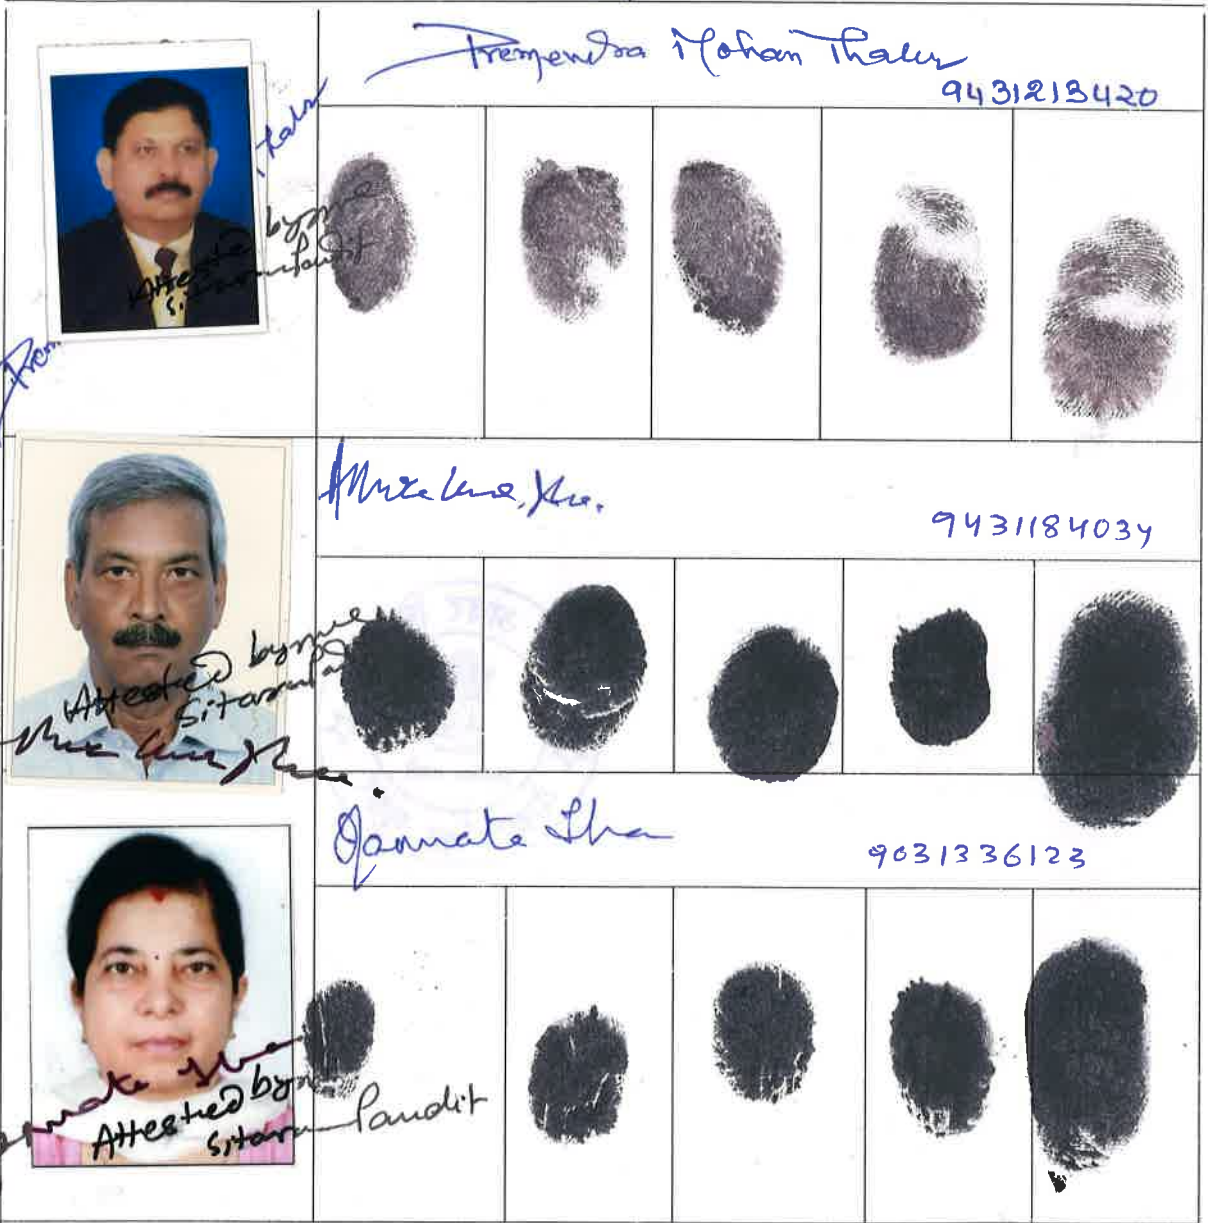 Premendra Mohan Thakur
9431213420
Thakur
Attested by me
Sitaram Pandit
Prem
9431184034
Attested by me
Sitaram Pa
Jha
9031336123
Jha
Attested by
Sitaram Pandit